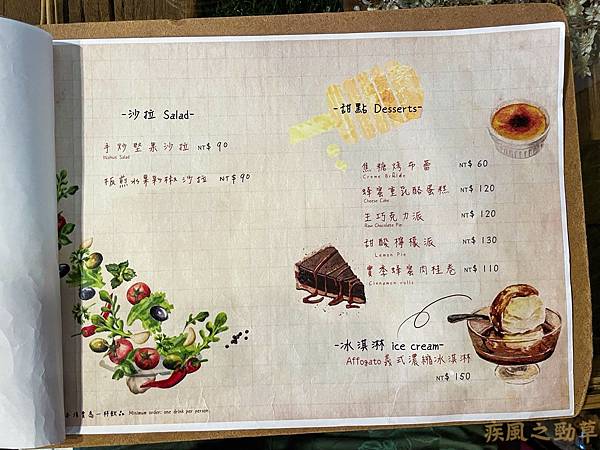 -沙拉 Salad-
手炒堅果沙拉 NT$ 90
Walnut Salad
板煎水果彩椒沙拉 NT$ 90
-甜點 Desserts-
焦糖烤布蕾 NT$ 60
Creme Brûlée
蜂蜜重乳酪蛋糕 NT$ 120
Cheese Cake
生巧克力派 NT$ 120
Raw Chocolate Pie
甜酸檸檬派 NT$ 130
Lemon Pie
豐季蜂蜜肉桂卷 NT$ 110
Cinnamon rolls
-冰淇淋 ice cream-
Affogato義式濃縮冰淇淋
NT$ 150
一杯飲品 Minimum order: one drink per person
疾風之勁草